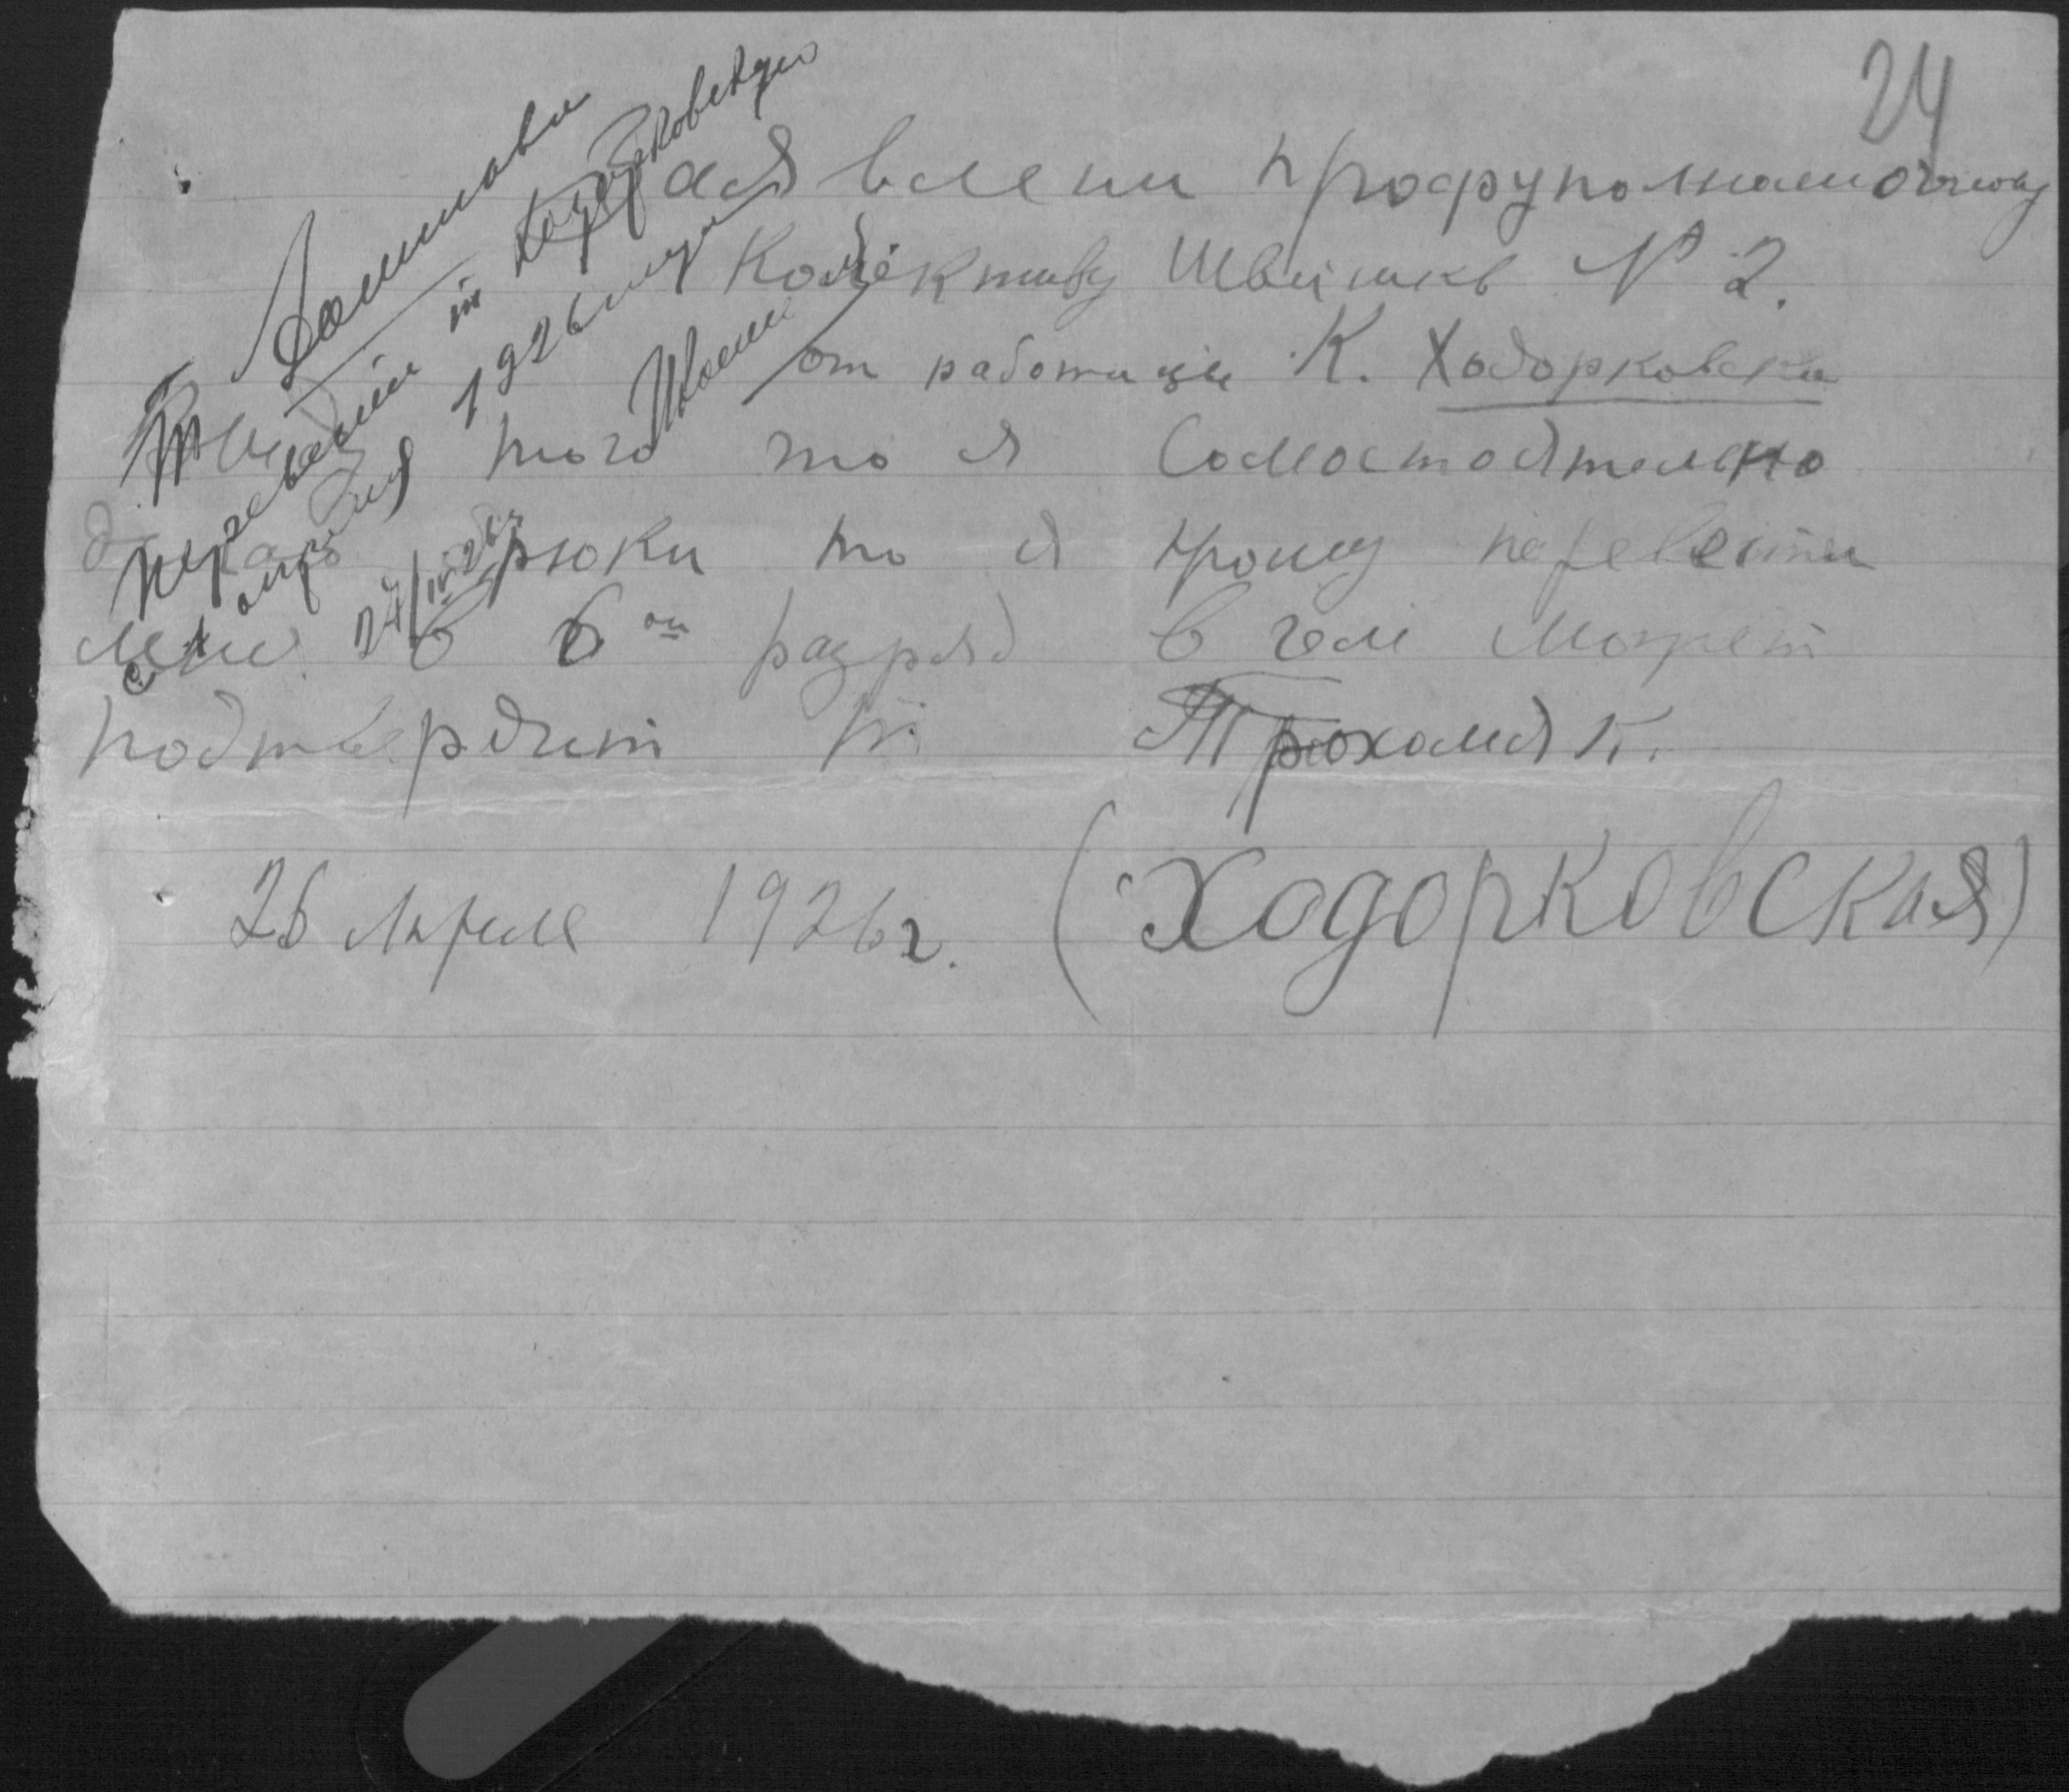 24
Заявлени профуполномочному
Колективу Швейникв № 2.
от работници К. Ходорковски
Ввиду того то я Самостоятельно
делаю брюки то я прошу перевести
меня в 6 ой разряд в чем Может
подтвердит т. Трохамя К.
26 Апреля 1926 г. (Ходорковская)
т.
перевести т. Ходорковскую
с 1 апреля 1926